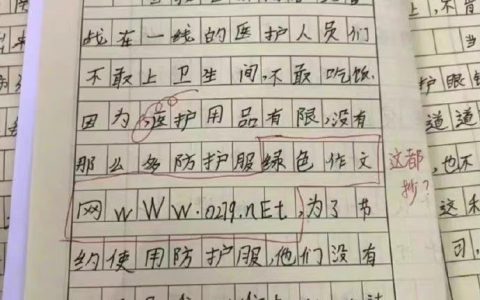 战在一线的医护人员们
不敢上卫生间,不敢吃饭.
因为医护用品有限,没有
那么多防护服绿色作文
网wWw.0279.nEt,为了节
约使用防护服,他们没有
这都
抄?
当
护眼镜
道道
也不
这和
司,